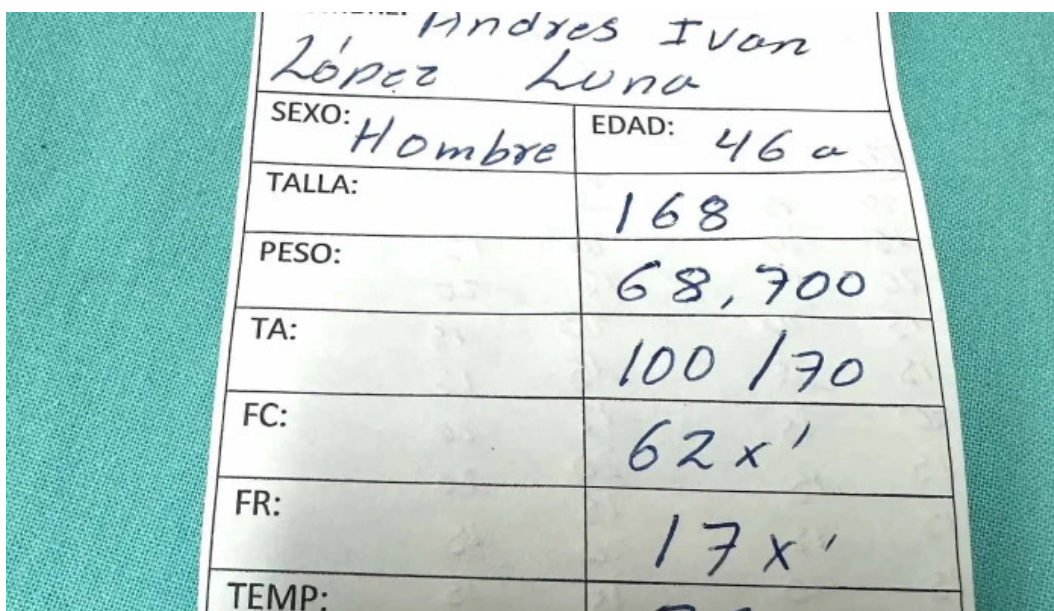 Andres Ivan
López Luna
SEXO: Hombre EDAD: 46 a
TALLA: 168
PESO: 68,700
TA: 100 / 70
FC: 62 x '
FR: 17 x '
TEMP: